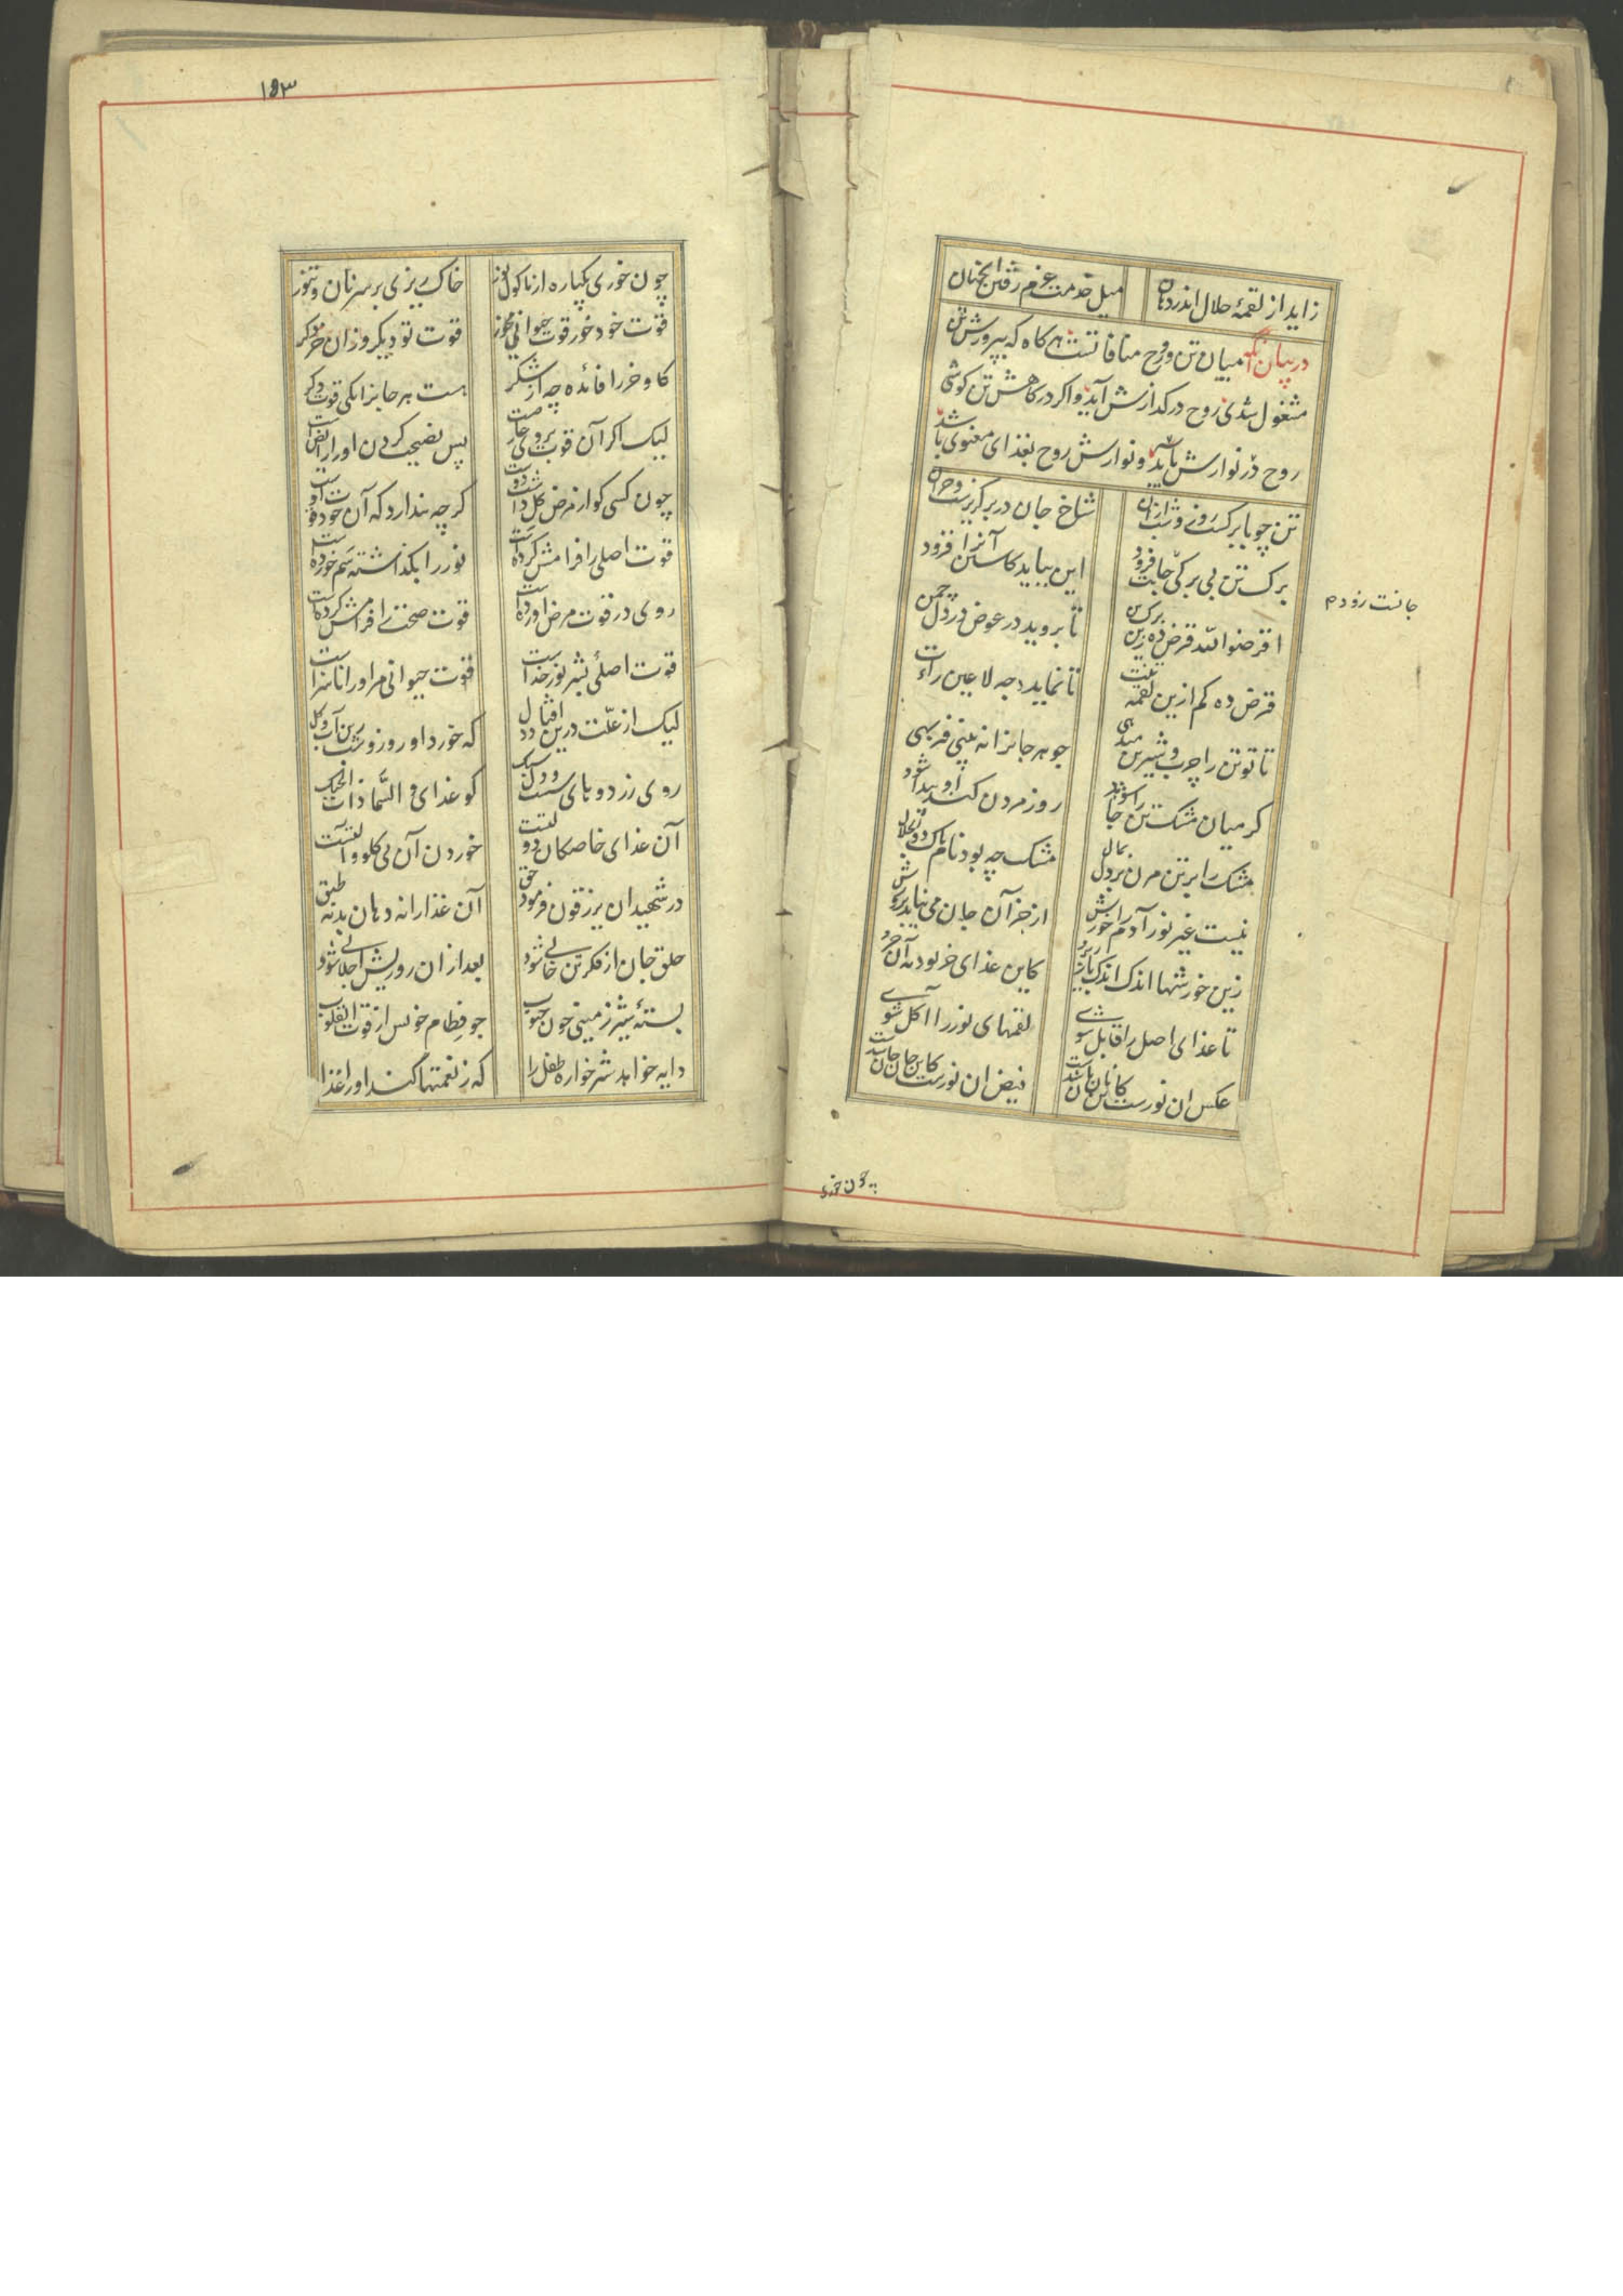 زاید از لقمهٔ حلال اندر دهان
میل خدمت عزم رفتن آنجهان
در بیان آنکه میان تن و روح منافاتست هر کاه که بپرورش تن
مشغول شدی روح در کدازش آید و اکر در کاهش تن کوشی
روح در نوازش باشد و نوازش روح بغذای معنوی باشد
تن چو با برکست روز و شب ازان
شاخ جان در برک ریزست و خزان
برک تن بی برکی جانست زود
این بباید کاستن آنرا فزود
جانت رو دم
اقرضوا الله قرض ده زین برک تن
تا بروید در عوض در دل چمن
قرض ده کم ازین لقمه تنت
تا نماید وجه لا عین رات
تا تو تن را چرب و شیرین میدهی
جوهر جانرا نه بینی فربهی
کر میان مشک تن جا را شود
روز مردن کند او پیدا شود
مشک را بر تن مزن بر دل بمال
مشک چه بود نام پاک ذو الجلال
نیست غیر نور آدم را خورش
از جز آن جان می نیابد پرورش
زین خورشها اندک اندک باز بر
کاین غذای خر بود نه آن حر
تا غذای اصل را قابل شوی
لقمهای نور را آکل شوی
عکس ان نورست کاین نان نان شدست
فیض ان نورست کاین جان جان شدست
چون خوری
۱۵۳
چون خوری یکباره از ماکول نور
خاک ریزی بر سر نان و تنور
قوت خود خور قوت حیوانی مخور
قوت تو دیکر و زان خر دکر
کاو و خر را فائده چه از شکر
هست هر جانرا یکی قوت دکر
لیک اکر آن قوت بر وی عارضیست
پس نصیحت کردن او را رایضیست
چون کسی کو از مرض کل داشت دوست
کرچه پندارد که آن خود قوت اوست
قوت اصلی را فرامش کرده است
نور را بکذاشته سم خورده است
روی در قوت مرض آورده است
قوت صحت را فرامش کرده است
قوت اصلی بشر نور خداست
قوت حیوانی مر او را ناسزاست
لیک از علت درین افتاد دل
که خورد او روز و شب زین آب و کل
روی زرد و پای سست و دل سبک
کو غذای و السما ذات الحبک
آن غذای خاصکان دولتست
خوردن آن بی کلو و آلتست
در شهیدان یرزقون فرمود حق
آن غذا را نه دهان بد نه طبق
حلق جان از فکر تن خالی شود
بعد ازان روزیش اجلالی شود
بستهٔ شیر زمینی چون حبوب
جو فطام خویش از قوت القلوب
دایه خواهد شیر خواره طفل را
که ز نعمتها کند او را غذا